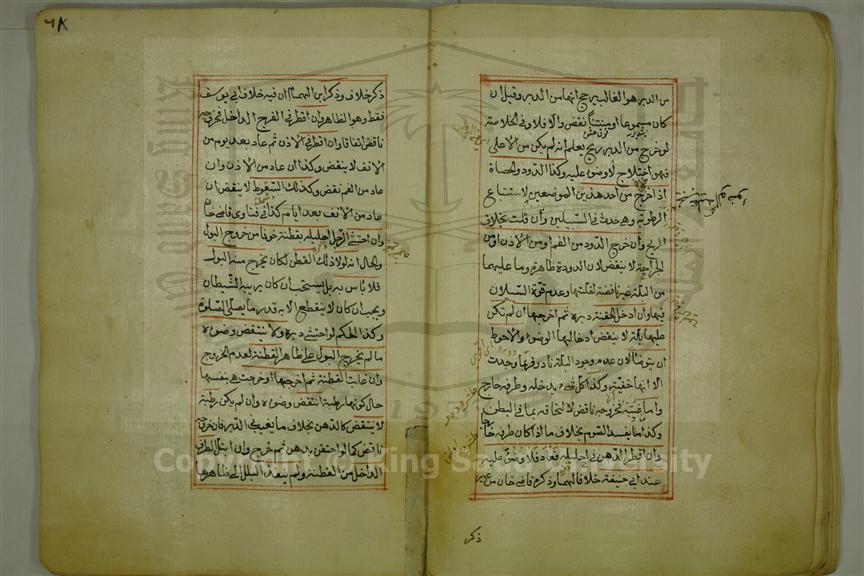 من الدبر هو الغالب يرجح انها من الدبر وقيل ان
كان مسموعا او منتنا نقض والا فلا وفي الخلاصة
لو خرج من الدبر ريح يعلم انه لم يكن من الاعلى
فهو اختلاج لا وضوء عليه وكذا الدود والحصاة
اذا خرج من احد هذين الموضعين لاستتباع
الرطوبة وهي حدث في السبيلين وان قلت بخلاف
الريح وان خرج الدود من الفم او من الاذن او من
الجراحة لا ينقض لان الدودة طاهرة وما عليهما
من البلة غير ناقضة لقلتها وعدم قوة السيلان
فيها وان ادخل الحقنة دبره ثم اخرجها ان لم تكن
عليها بلة لا ينقض ادخالها الوضوء والاحوط
ان يتوضا لان عدم وجود البلة نادر فربما وجدت
الا انها خفية وكذا كل شيء يدخله وطرفه خارج
واما غيبه فخروجه ناقض لالتحاقه بما في البطن
وكذا يفسد الصوم بخلاف ما اذا كان طرفه خارجا
وان اقطر الدهن في احليله فعاد فلا وضوء عليه
عند ابي حنيفة خلافا لهما وذكر قاضي خان من غير
ذكر
٦٨
ذكر خلاف وذكر ابن الهمام ان فيه خلاف ابي يوسف
فقط وهو الظاهر وان اقطر في الفرج الداخل فخروجه
ناقض اتفاقا وان اقطر في الاذن ثم عاد بعد يوم من
الانف لا ينقض وكذا ان عاد من الاذن وان
عاد من الفم نقض وكذلك السعوط لا ينقض ان
عاد من الانف بعد ايام كذا في فتاوى قاضي خان
وان احتشى الرجل احليله بقطنة خوفا من خروج البول
والحال انه لولا ذلك القطن لكان يخرج منه البول
فلا باس به بل يستحب ان كان يريبه الشيطان
ويجب ان كان لا ينقطع الا به قدر ما يصلي الصلوة
وكذا الحكم لو احتشى دبره ولا ينتقض وضوءه
ما لم يخرج البول على ظاهر القطنة لعدم الخروج
وان غابت القطنة ثم اخرجها او خرجت هي بنفسها
حال كونها رطبة انتقض وضوءه وان لم يكن رطبة
لا ينتقض كالدهن بخلاف ما يغيب في الدبر فان خروجه
ناقض كما لو احتقن بدهن ثم خرج وان ابتل الطرف
الداخل من القطنة ولم ينفذ البلل الى ظاهرها
Copyright © King Saud University
King Saud
1957